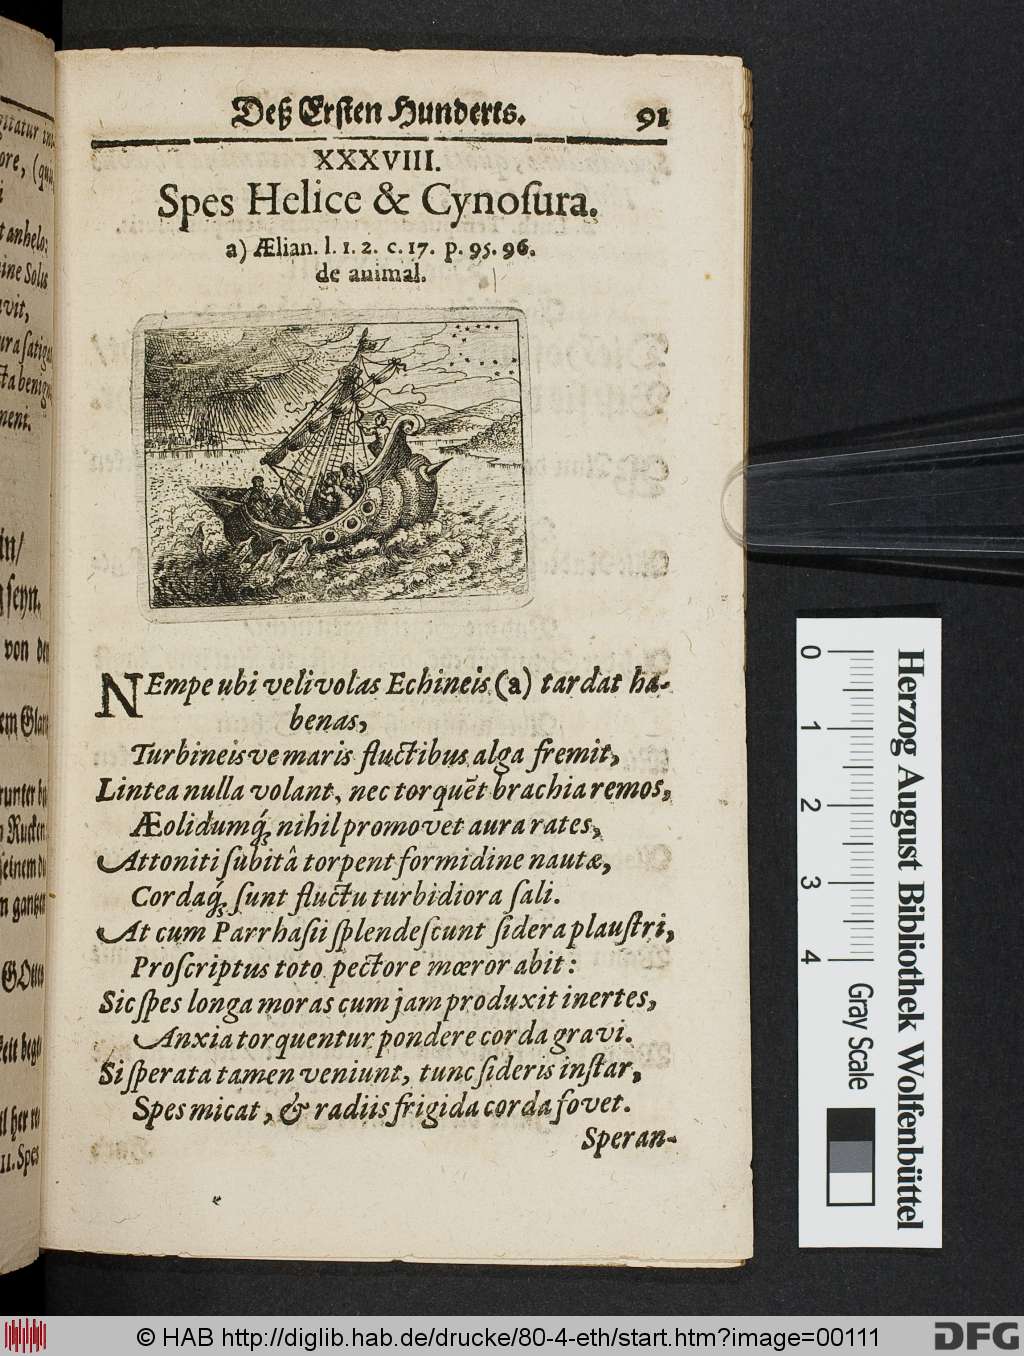 Deß Ersten Hunderts. 91
XXXVIII.
Spes Helice & Cynoſura.
a) Ælian. l. 1. 2. c. 17. p. 95. 96.
de animal.
NEmpe ubi velivolas Echineis (a) tardat ha-
benas,
Turbineisve maris fluctibus alga fremit,
Lintea nulla volant, nec torquēt brachia remos,
Æolidumq́; nihil promovet aura rates,
Attoniti ſubitâ torpent formidine nautæ,
Cordaq́; ſunt fluctu turbidiora ſali.
At cum Parrhaſii ſplendeſcunt ſidera plauſtri,
Proſcriptus toto pectore mœror abit:
Sic ſpes longa moras cum jam produxit inertes,
Anxia torquentur pondere corda gravi.
Si ſperata tamen veniunt, tunc ſideris inſtar,
Spes micat, & radiis frigida corda fovet.
Speran-
gitatur
ore, (qu
i
t anhelo:
ine Solis
vit,
ura ſatig
ta benig
nent.
in/
ſeyn.
von de
em Gla
runter
Rucken
ſeinem
n gantz
GOtte
keit
il her
II. Spes
0 1 2 3 4
Herzog August Bibliothek Wolfenbüttel
Gray Scale
© HAB http://diglib.hab.de/drucke/80-4-eth/start.htm?image=00111
DFG